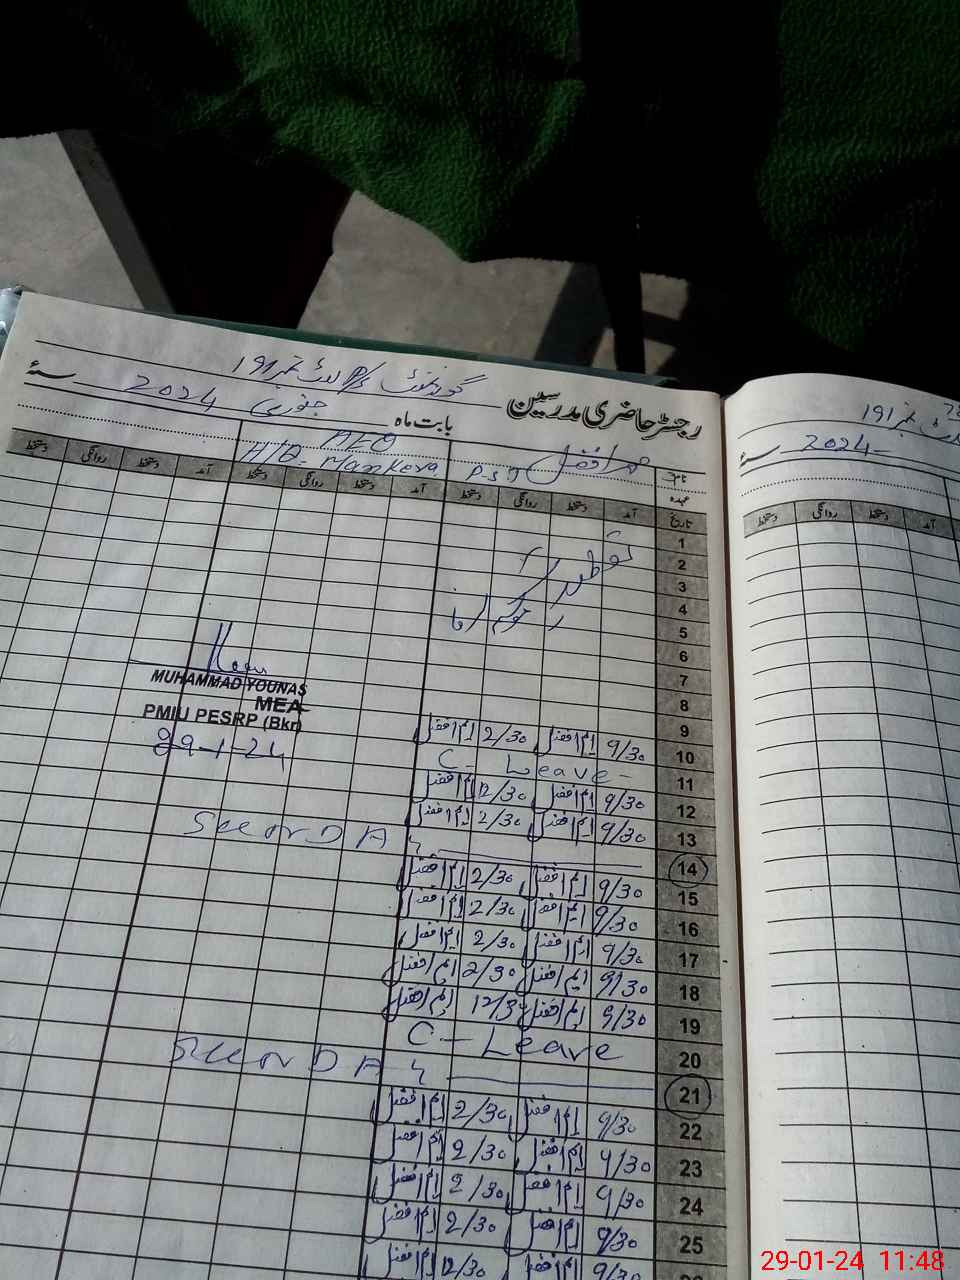 رجسٹر حاضری مدرسین گورنمنٹ P/S لاٹ نمبر 191
بابت ماہ جنوری 2024 سنہ
نام
افضل
AEO
عہدہ
P.S.T
H/Q - Mankera
تاریخ آمد دستخط روانگی دستخط آمد دستخط روانگی دستخط آمد دستخط روانگی دستخط
1
2
3
4
5
6
7
8
9
10 9/30 ایم افضل 2/30 ایم افضل
11 C - Leave -
12 9/30 ایم افضل 12/30 ایم افضل
13 9/30 ایم افضل 2/30 ایم افضل
14 SUNDAY
15 9/30 ایم افضل 2/30 ایم افضل
16 9/30 ایم افضل 2/30 ایم افضل
17 9/30 ایم افضل 2/30 ایم افضل
18 9/30 ایم افضل 2/30 ایم افضل
19 9/30 ایم افضل 12/30 ایم افضل
20 C - Leave
21 SUNDAY
22 9/30 ایم افضل 2/30 ایم افضل
23 9/30 ایم افضل 2/30 ایم افضل
24 9/30 ایم افضل 2/30 ایم افضل
25 9/30 ایم افضل 2/30 ایم افضل
9/30 ایم افضل 12/30 ایم افضل
MUHAMMAD YOUNAS
MEA
PMIU PESRP (Bkr)
29-1-24
نمبر 191
2024
آمد دستخط روانگی دستخط
29-01-24 11:48